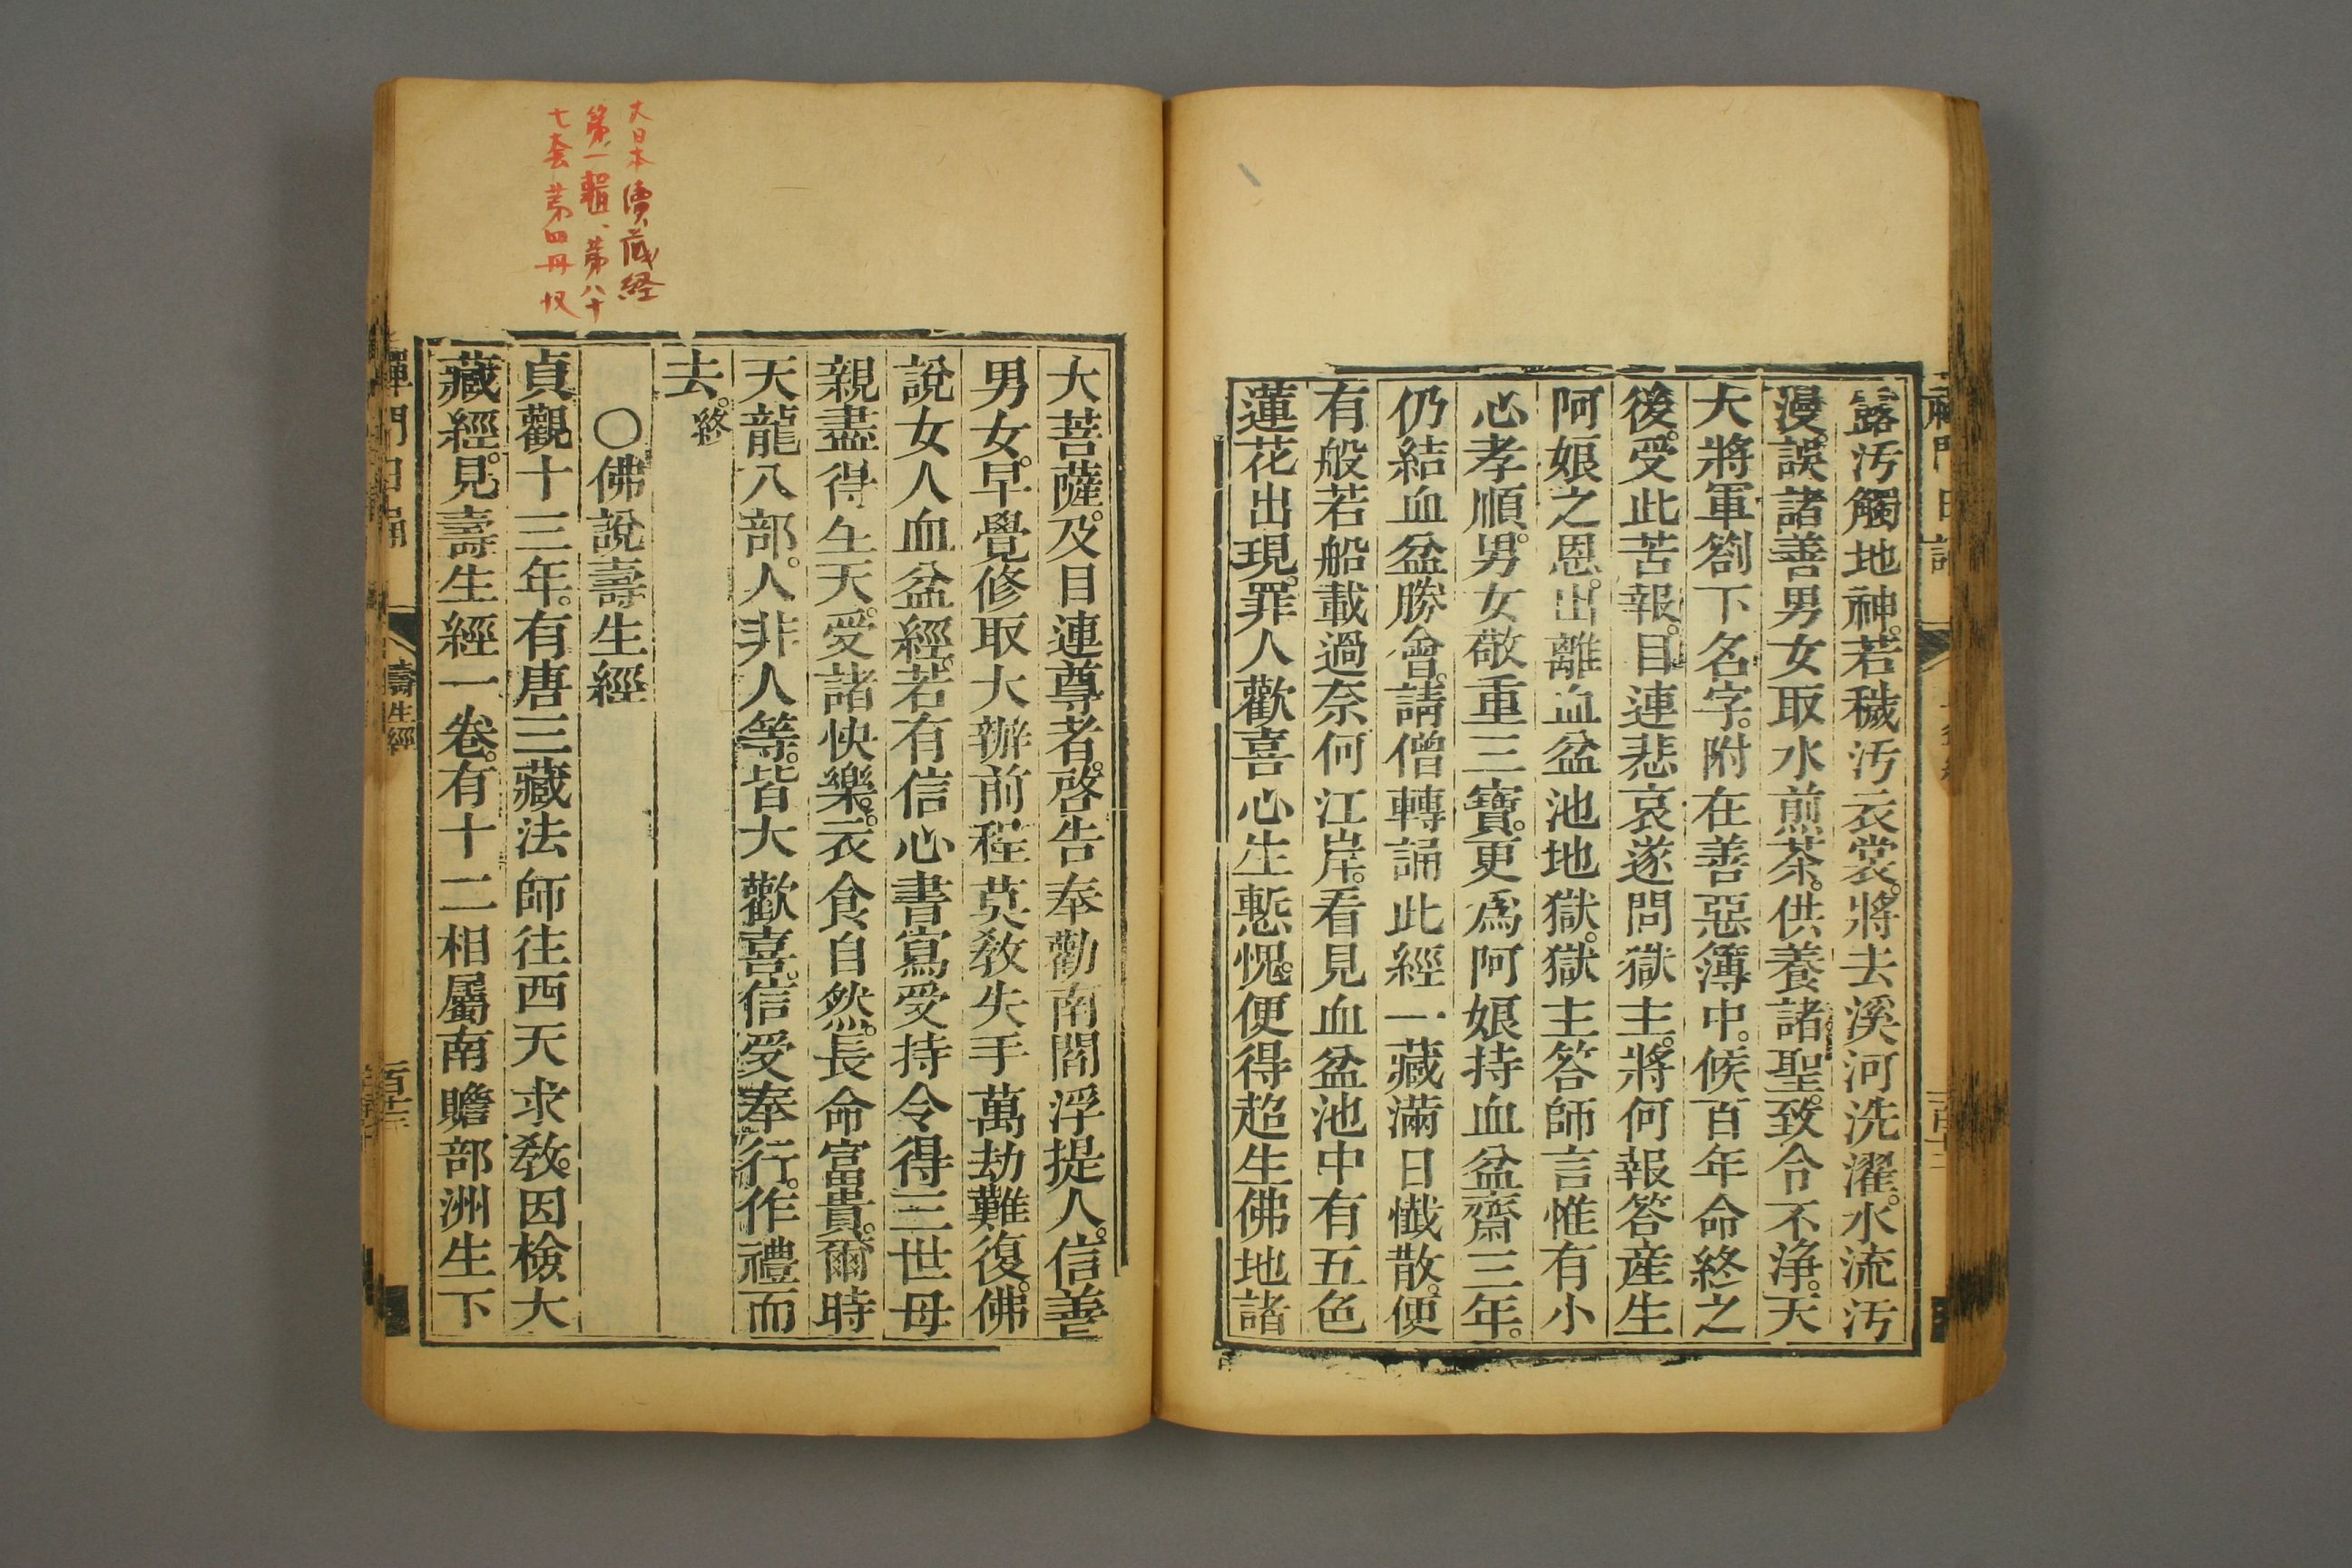 露汚觸地神。若穢汚衣裳。將去溪河洗濯。水流汚
漫。誤諸善男女取水煎茶。供養諸聖。致令不淨。天
大將軍劄下名字。附在善惡簿中。候百年命終之
後。受此苦報。目連悲哀遂問獄主。將何報答産生
阿娘之恩。出離血盆池地獄。獄主答師言惟有小
心孝順。男女敬重三寶。更爲阿娘持血盆齋三年。
仍結血盆勝會。請僧轉誦此經一藏滿日懺散。便
有般若船載過奈何江岸。看見血盆池中有五色
蓮花出現。罪人歡喜心生慙愧。便得超生佛地諸
大菩薩。及目連尊者。啓告奉勸南閻浮提人。信善
男女。早覺修取大辦前程莫敎失手萬劫難復。佛
說女人血盆經。若有信心書寫受持令得三世母
親盡得生天。受諸快樂。衣食自然。長命富貴。爾時
天龍八部。人非人等。皆大歡喜。信受奉行。作禮而
去。終
○佛說壽生經
貞觀十三年。有唐三藏法師往西天求敎。因檢大
藏經。見壽生經一卷。有十二相屬南贍部洲生下
禪門日誦 壽生經 百十三
大日本續藏経
第一輯、第八十
七套第四册収